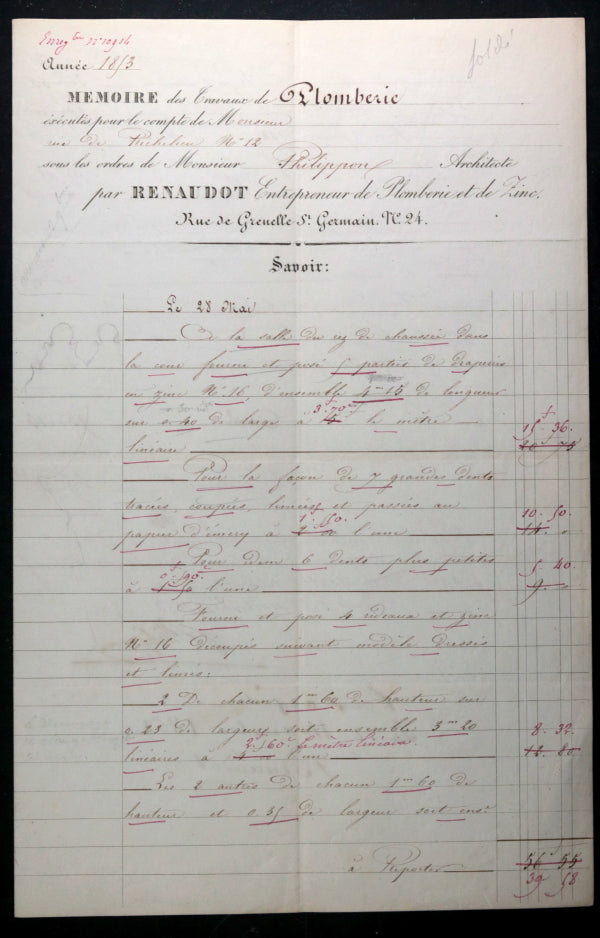 Enreg. N° 10914
Soldé
Année 1853
MEMOIRE des Travaux de Plomberie
exécutés pour le compte de Monsieur
rue de Richelieu N° 12
sous les ordres de Monsieur Philippon Architecte
par RENAUDOT Entrepreneur de Plomberie et de Zinc.
Rue de Grenelle St. Germain. N° 24.
Savoir:
Le 28 Mai
A la salle du rez de chaussée dans
la cour fourni et posé 5 parties de draperies
en zinc N° 16 d'ensemble 4m 15 de longueur
3f 70c
sur 0.40 de large à 5 le mètre 15. 36.
linéaire 20 75
Pour la façon de 7 grandes dents
tracées, coupées, limées et passées au
1. 50. 10. 50.
papier d'émery à 2 00 l'une 14. 0
Pour idem 6 dents plus petites 5. 40
0. 90.
à 1. 50 l'une 9. 0
Fourni et posé 4 rideaux et zinc
N° 16 découpés suivant modèle dressés
et limés:
2 De chacun 1m 60 de hauteur sur
0.23 de largeur soit ensemble 3m 20 8. 32
2. 60 le mètre linéaire.
linéaires à 4 l'un 12. 80
Les 2 autres de chacun 1m 60 de
hauteur et 0.35 de largeur soit ense
à Reporter 56 55
39 58